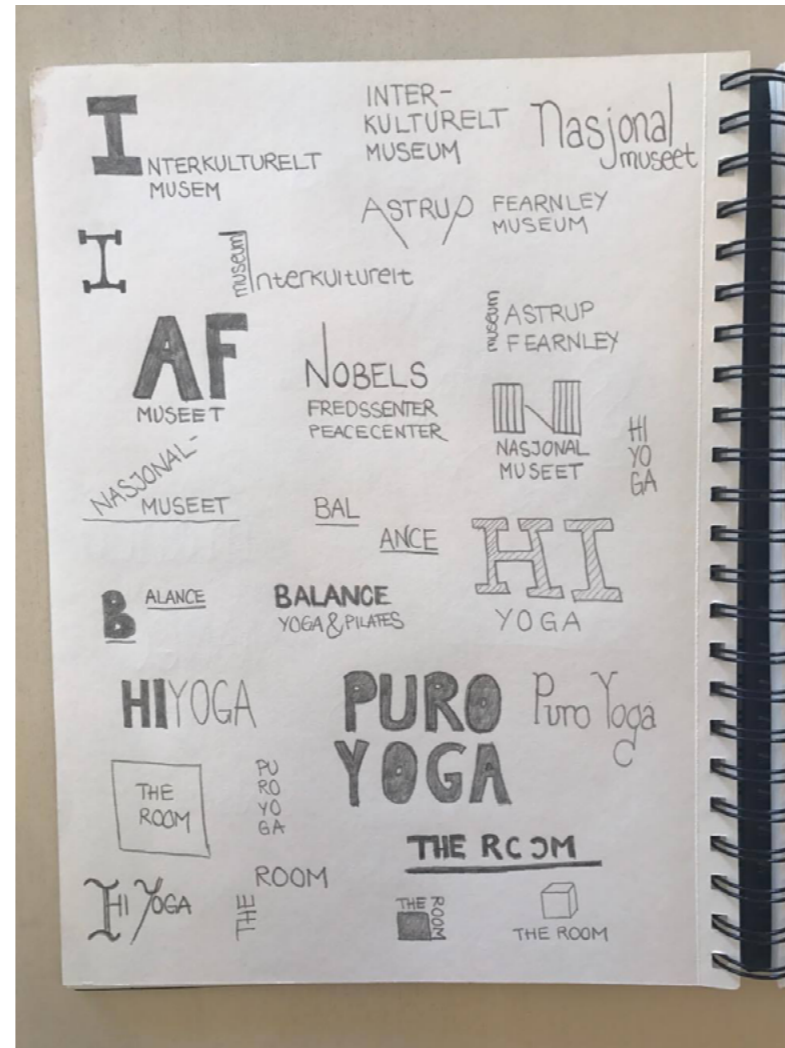 INTERKULTURELT
MUSEM
INTER-
KULTURELT
MUSEUM
Nasjonal
museet
ASTRUP
FEARNLEY
MUSEUM
I
museum
Interkulturelt
museum
ASTRUP
FEARNLEY
AF
MUSEET
NOBELS
FREDSSENTER
PEACECENTER
N
NASJONAL
MUSEET
HI
YO
GA
NASJONAL-
MUSEET
BAL
ANCE
HI
YOGA
BALANCE
BALANCE
YOGA & PILATES
HIYOGA
PURO
YOGA
Puro Yoga
THE
ROOM
PU
RO
YO
GA
THE ROOM
HI YOGA
THE
ROOM
THE
ROOM
THE ROOM